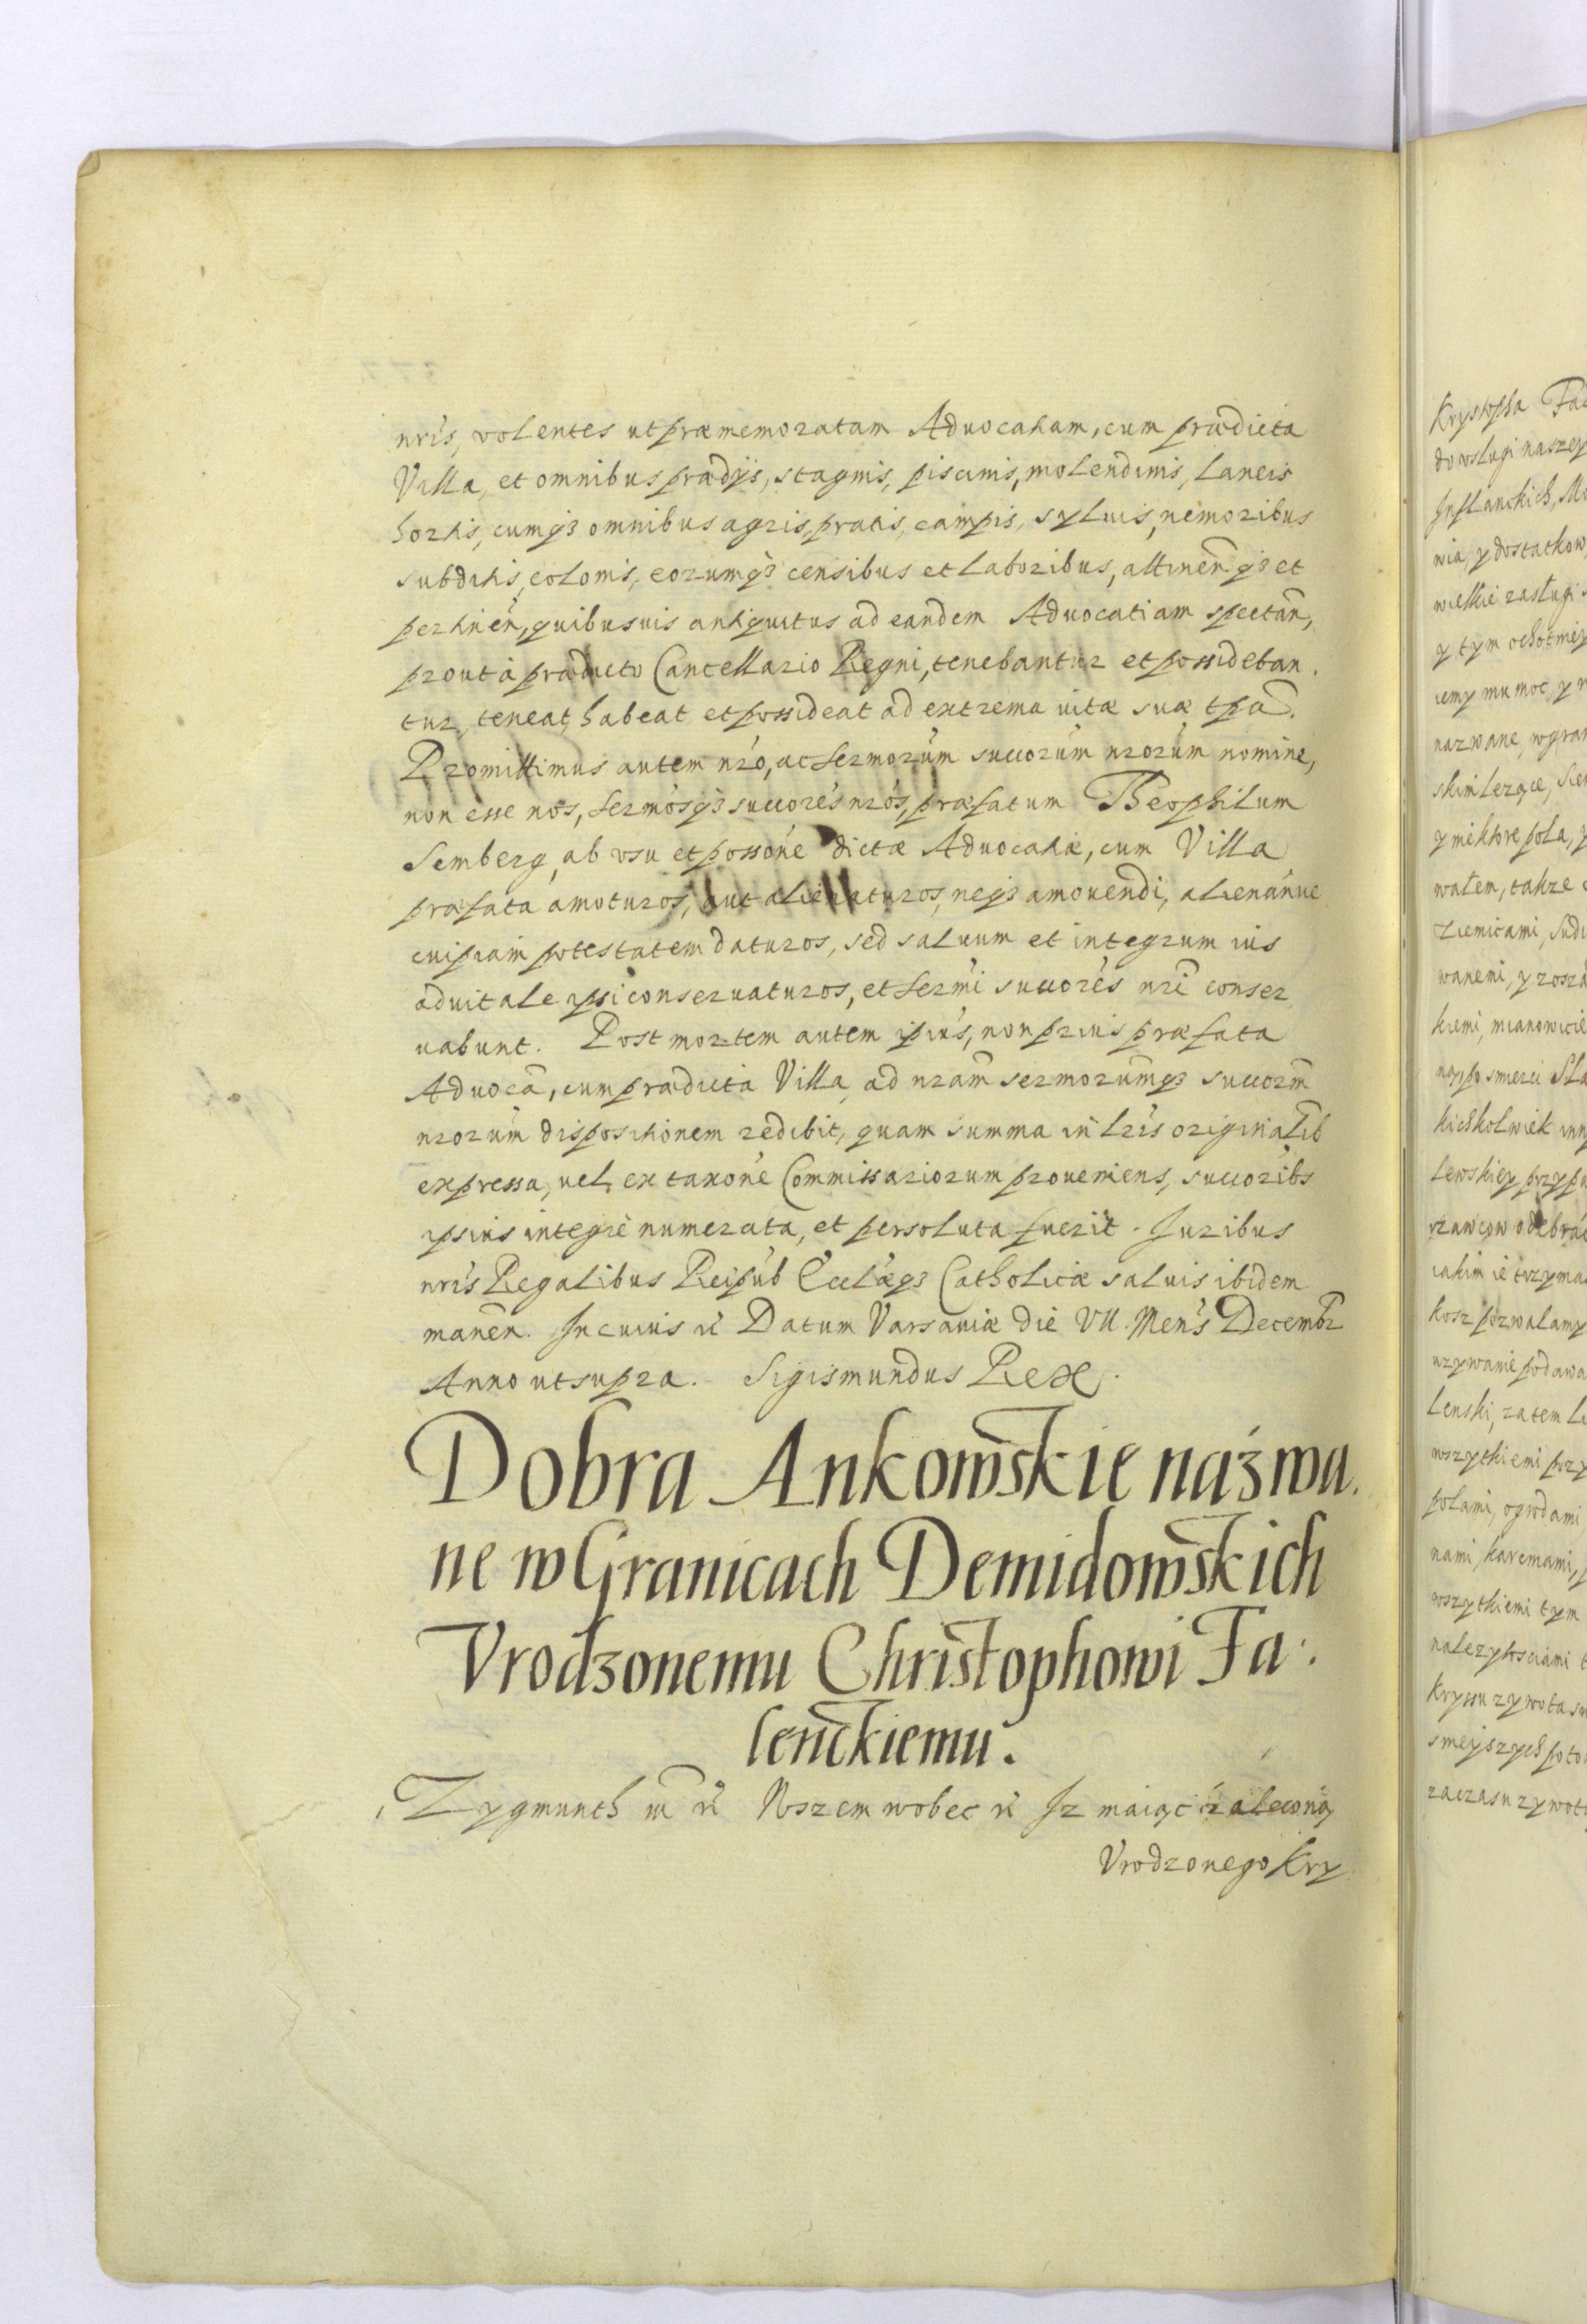 nris, volentes ut præmemoratam Advocatiam, cum prædicta
Villa, et omnibus prædijs, stagnis, piscinis, molendinis, laneis
hortis, cumq3 omnibus agris, pratis, campis, syluis, nemoribus
subditis, colonis, eorumq3 censibus et laboribus, attinen̄ q3 et
pertinen̄, quibusuis antiquitus ad eandem Advocatiam spectan̄,
prout à prædicto Cancellario Regni, tenebantur et possideban
tur, teneat, habeat et possideat ad extrema uitæ suæ tp̄a.
Promittimus autem nr̄o, ac Ser̄morum succ̄orum nr̄orum nomine,
non esse nos, Ser̄mosq3 succ̄ores nr̄os, præfatum Theophilum
Semberg, ab vsu et poss̄one dictæ Advocatiæ, cum Villa
præfata amoturos, aut alienaturos, neq3 amouendi, alienan̄ue
cuipiam potestatem daturos, sed saluum et integrum ius
aduitale ipsi conseruaturos, et Ser̄mi succ̄ores nr̄i conser
uabunt. Post mortem autem ip̄ius, non prius præfata
Advocā, cum prædicta Villa ad nr̄am ser̄morum̄q3 succ̄orm̄
nr̄orum dispositionem redibit, quam summa in lr̄is originalib
expressa, uel ex tax̄one Commissariorum proueniens, succ̄oribs
ipsius integrè numerata, et persoluta fuerit. Juribus
nr̄is Regalibus Reipub̄ Eccl̄æq3 Catholicæ saluis ibidem
manen̄. In cuius rei Datum Varsauiæ die VII. Mens̄ Decembr̄
Anno ut supra. Sigismundus Rex.
Dobra Ankowskie názwa.
ne w Granicach Demidowskich
Vrodzonemu Christophowi Fa:
lenckiemu.
Zygmunth III Wszem wobec Iz maiąc zaleconą
Vrodzonego Kry
Krystopha
do vslugi naszey
Inflanckich,
wia, y dostatkow
wielkie zaslugi
y tym ochotniey
iemy mu moc, y
nazwane, w gran
skim lezące,
y niektore pola,
walem, takze
wanemi, y
kiemi, mianowicie
po smierci
kichkolwiek inn
lewskiey przypu
odebrać
iakim ie trzyma
kosz pozwalamy
uzywanie podawa
lenski, zatem
wszytkiemi przy
polami, ogrodami
nami, karcmami,
wszytkiemi tym
nalezytosciami
Kryssu zywota
smeyszych poto
zaczasu zywot